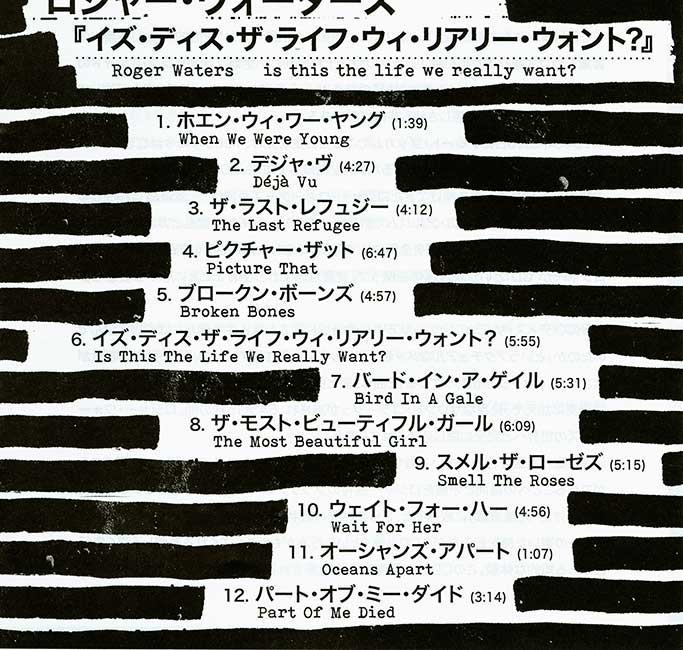 ロジャー・ウォーターズ
『イズ・ディス・ザ・ライフ・ウィ・リアリー・ウォント?』
Roger Waters is this the life we really want?
1. ホエン・ウィ・ワー・ヤング (1:39)
When We Were Young
2. デジャ・ヴ (4:27)
Déjà Vu
3. ザ・ラスト・レフュジー (4:12)
The Last Refugee
4. ピクチャー・ザット (6:47)
Picture That
5. ブロークン・ボーンズ (4:57)
Broken Bones
6. イズ・ディス・ザ・ライフ・ウィ・リアリー・ウォント? (5:55)
Is This The Life We Really Want?
7. バード・イン・ア・ゲイル (5:31)
Bird In A Gale
8. ザ・モスト・ビューティフル・ガール (6:09)
The Most Beautiful Girl
9. スメル・ザ・ローゼズ (5:15)
Smell The Roses
10. ウェイト・フォー・ハー (4:56)
Wait For Her
11. オーシャンズ・アパート (1:07)
Oceans Apart
12. パート・オブ・ミー・ダイド (3:14)
Part Of Me Died